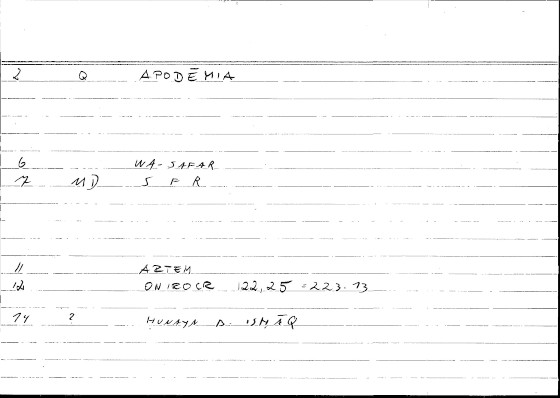 2 Q APODĒMIA
6 WA-SAFAR
7 MD S F R
11 ARTEM
12 ONIROCR 122,25 = 223.13
14 ? HUNAYN B. ISHĀQ